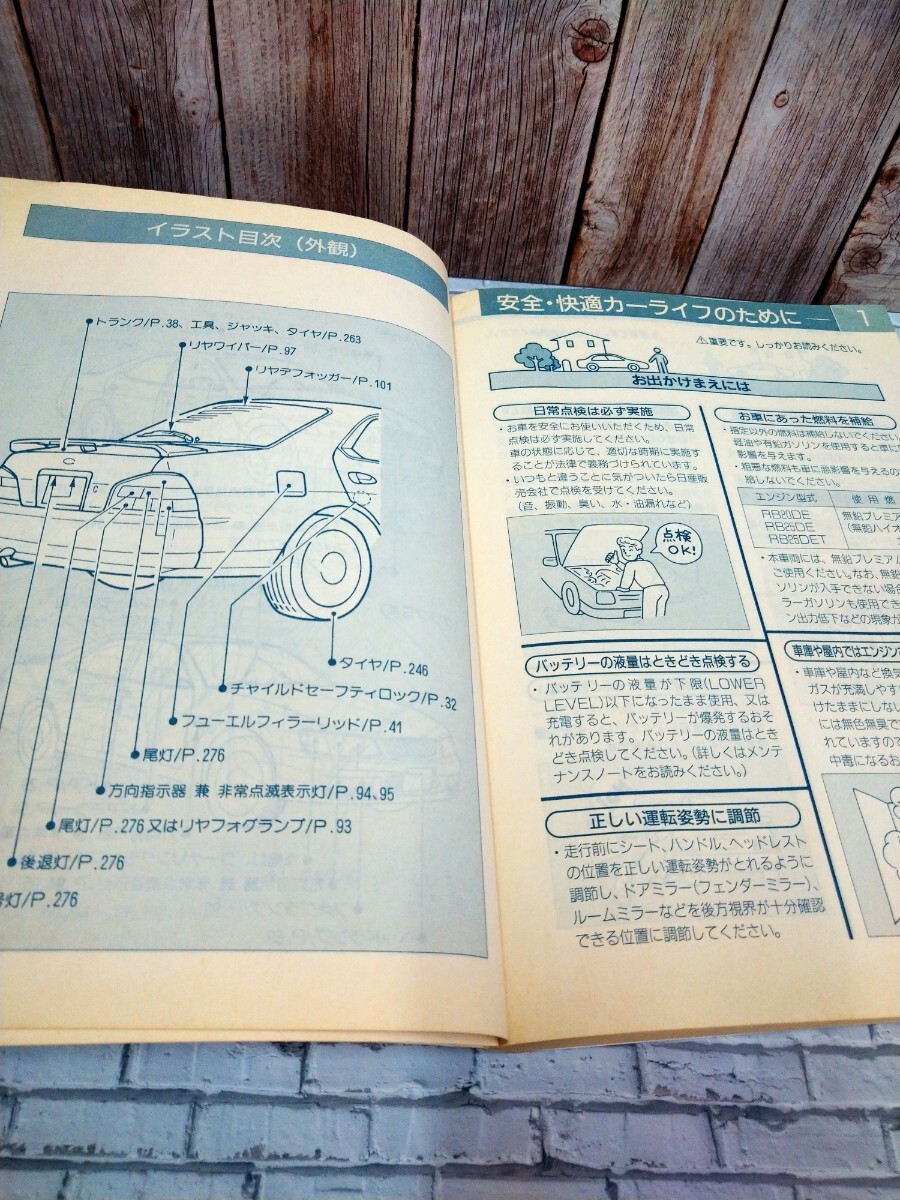 イラスト目次（外観）
トランク/P.38、工具、ジャッキ、タイヤ/P.263
リヤワイパー/P.97
リヤデフォッガー/P.101
タイヤ/P.246
チャイルドセーフティロック/P.32
フューエルフィラーリッド/P.41
尾灯/P.276
方向指示器 兼 非常点滅表示灯/P.94、95
尾灯/P.276 又はリヤフォグランプ/P.93
後退灯/P.276
号灯/P.276
安全・快適カーライフのために 1
⚠重要です。しっかりお読みください。
お出かけまえには
日常点検は必ず実施
・お車を安全にお使いいただくため、日常
点検は必ず実施してください。
車の状態に応じて、適切な時期に実施す
ることが法律で義務づけられています。
・いつもと違うことに気がついたら日産販
売会社で点検を受けてください。
（音、振動、臭い、水・油漏れなど）
点検
OK!
バッテリーの液量はときどき点検する
・バッテリーの液量が下限(LOWER
LEVEL)以下になったまま使用、又は
充電すると、バッテリーが爆発するおそ
れがあります。バッテリーの液量はとき
どき点検してください。（詳しくはメンテ
ナンスノートをお読みください。）
正しい運転姿勢に調節
・走行前にシート、ハンドル、ヘッドレスト
の位置を正しい運転姿勢がとれるように
調節し、ドアミラー（フェンダーミラー）、
ルームミラーなどを後方視界が十分確認
できる位置に調節してください。
お車にあった燃料を補給
・指定以外の燃料は補給しないでください。
軽油や有鉛ガソリンを使用すると車に
影響を与えます。
・粗悪な燃料も車に悪影響を与えるの
給しないでください。
エンジン型式 使用燃
RB20DE 無鉛プレミア
RB25DE （無鉛ハイオ
RB25DET
・本車両には、無鉛プレミアム
ご使用ください。なお、無鉛
ソリンが入手できない場合
ラーガソリンも使用でき
ン出力低下などの現象が
車庫や屋内ではエンジン
・車庫や屋内など換気
ガスが充満しやすい
けたままにしない
には無色無臭で
れていますので
中毒になるお